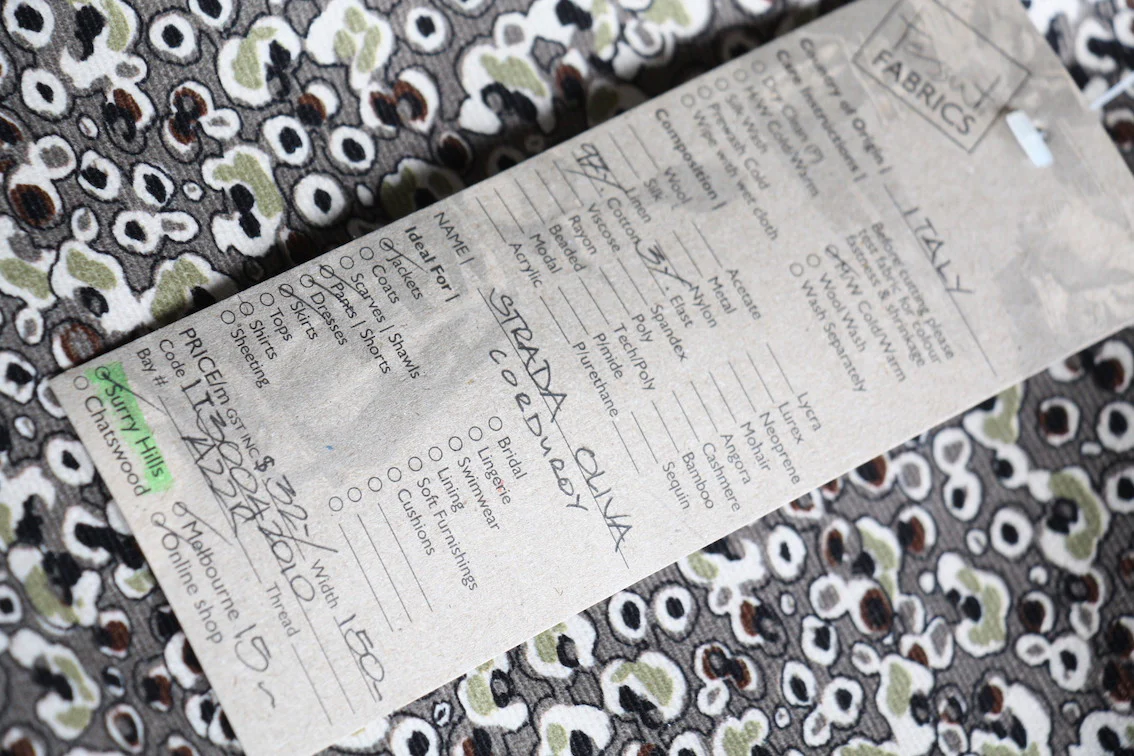 FABRICS
Country of Origin | ITALY
Care Instructions |
Dry Clean (?)
H/W Cold/Warm
Silk Wash
Prewash Cold
Wipe with wet cloth
Before cutting please
test fabric for colour
fastness & shrinkage
H/W Cold/Warm
Wool Wash
Wash Separately
Composition |
Wool
Silk
Linen
97% Cotton
Viscose
Rayon
Beaded
Modal
Acrylic
Acetate
Metal
Nylon
3% Elast
Spandex
Poly
Tech/Poly
P/mide
P/urethane
Lycra
Lurex
Neoprene
Mohair
Angora
Cashmere
Bamboo
Sequin
NAME | STRADA OLIVA
CORDUROY
Ideal For |
Jackets
Coats
Scarves | Shawls
Pants | Shorts
Dresses
Skirts
Tops
Shirts
Sheeting
Bridal
Lingerie
Swimwear
Lining
Soft Furnishings
Cushions
PRICE/m GST INC $ 32- Width 150-
Code | Thread
Bay #
Surry Hills
Chatswood
Melbourne 15~
Online shop